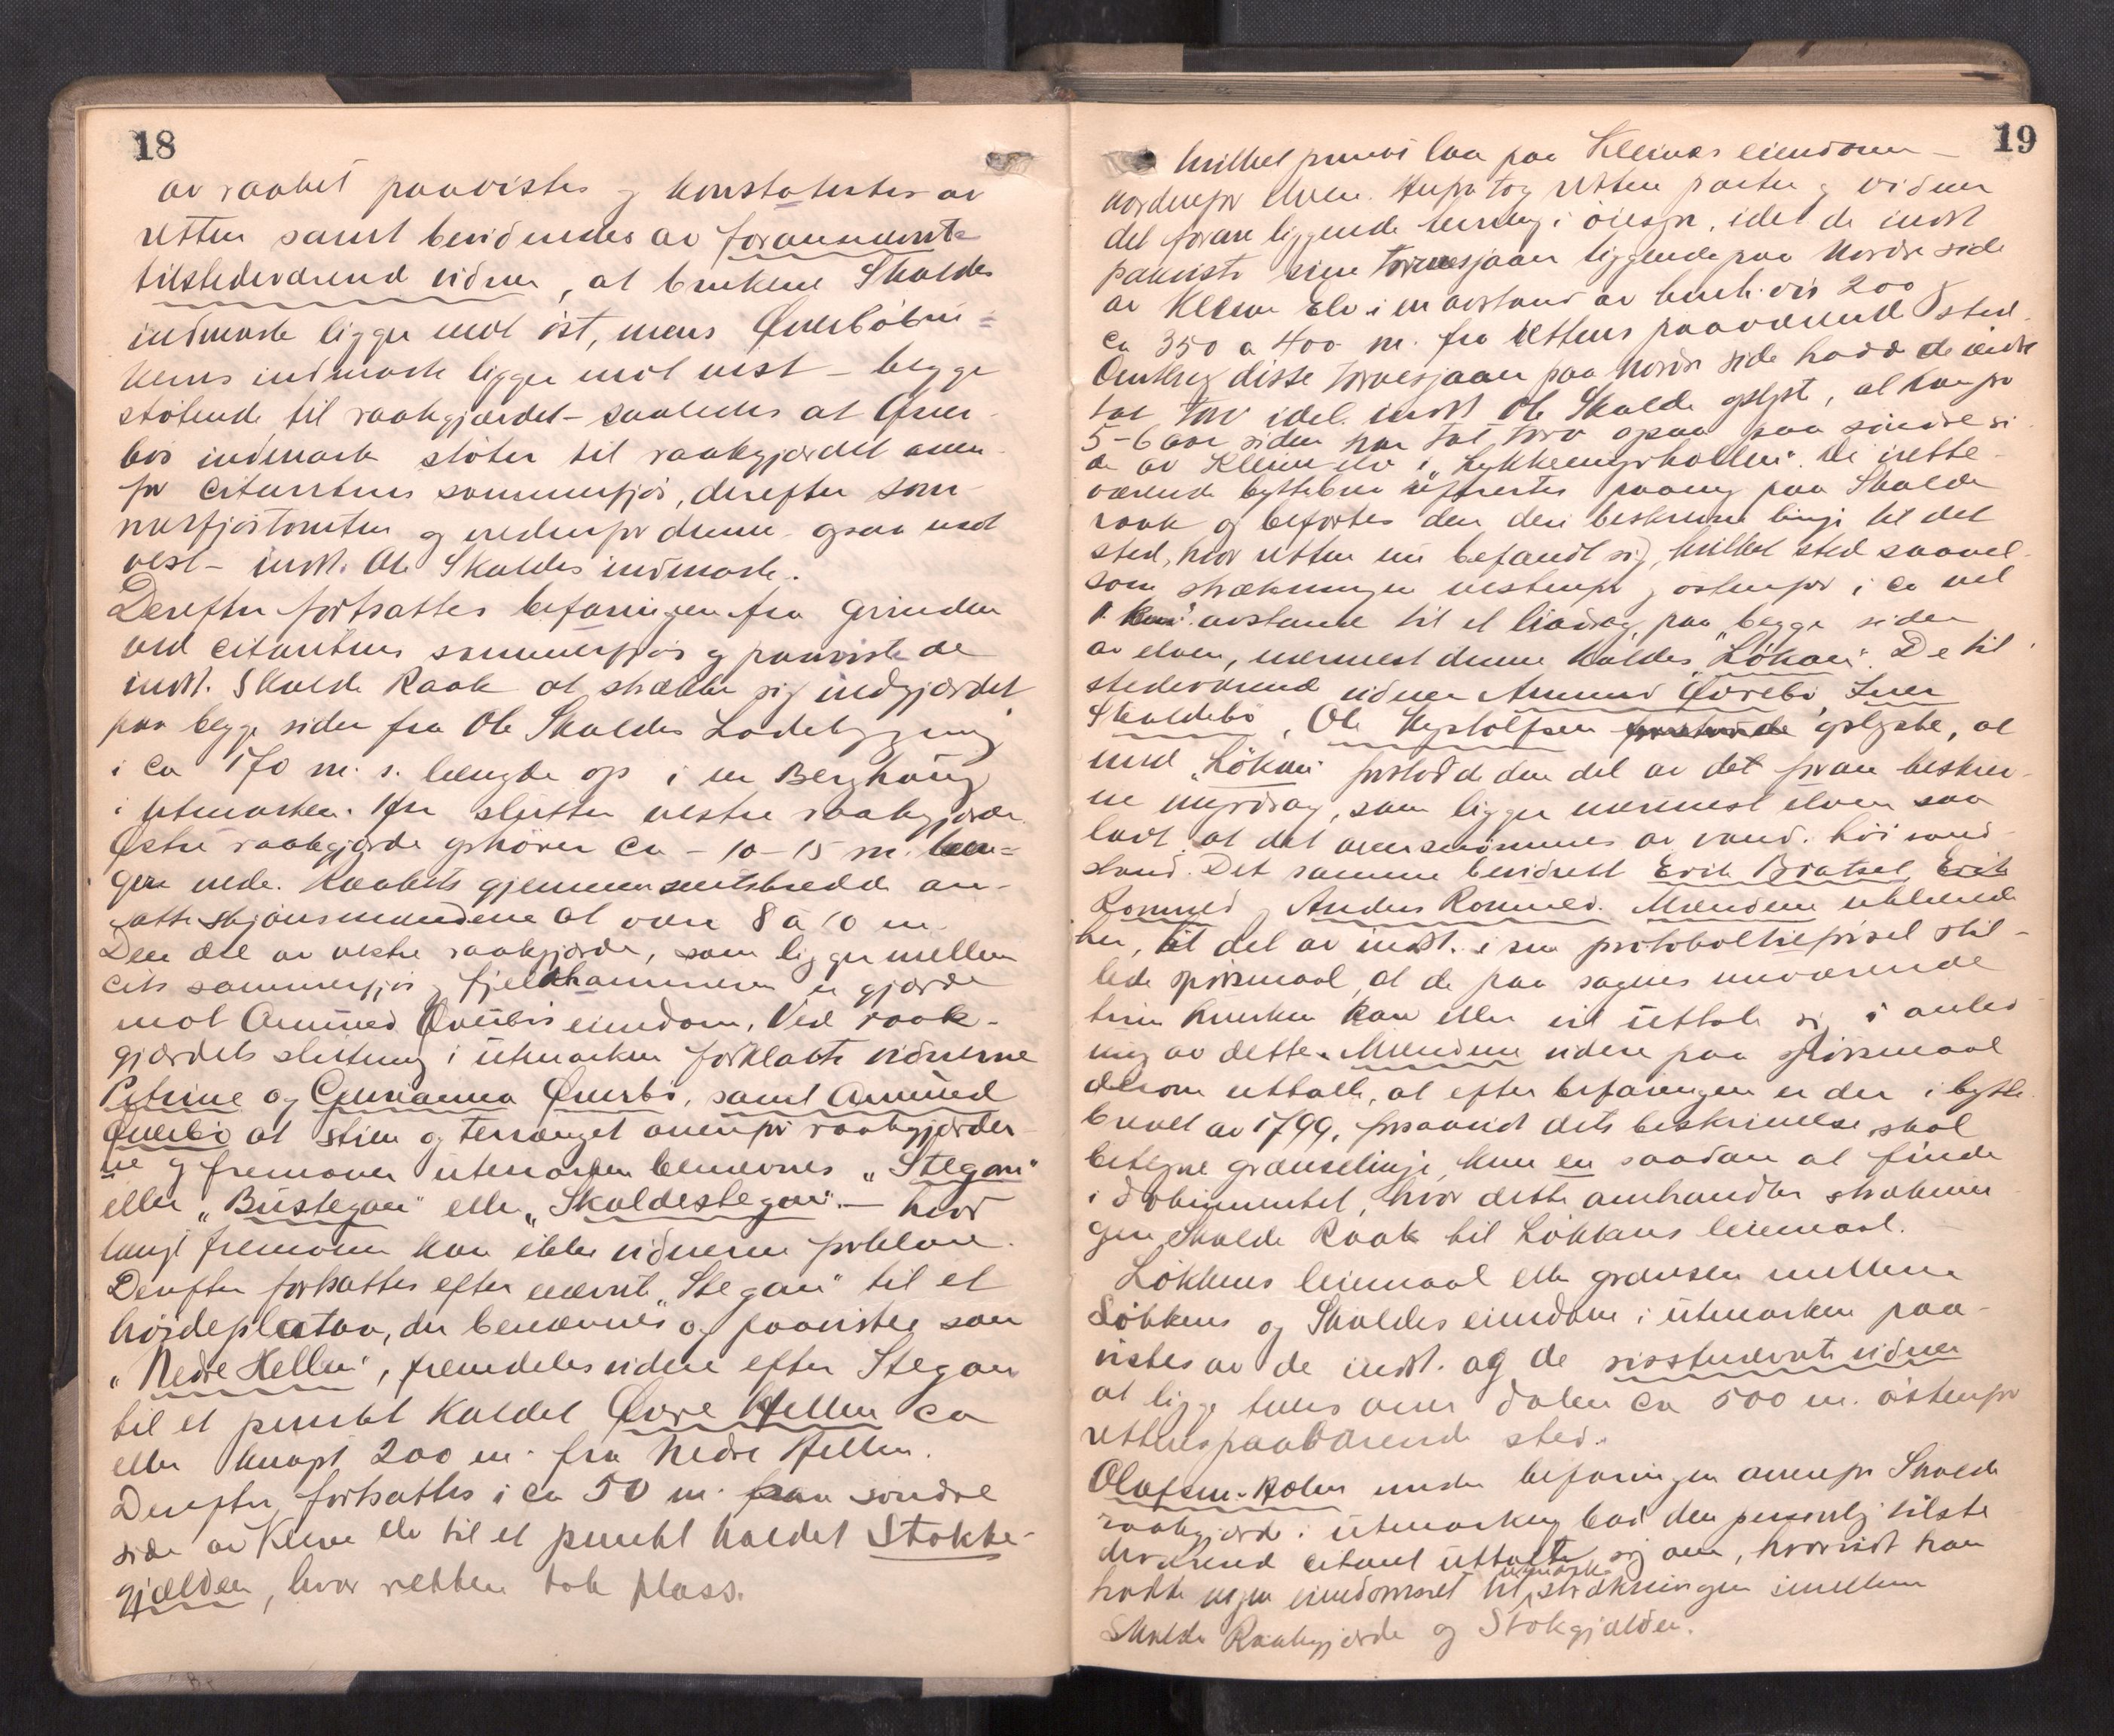 18
av raaket paavistes og konstatertes av
retten samt bevidnedes av forannævnte
tilstedeværend vidner, at brukene Skaldes
indmark ligger mot øst, mens Øverbøbru=
kenes indmark ligger mot vest - begge
støtende til raakgjærdet - saaledes at Øver-
bøs indmark støter til raakgjærdet oven-
for citantens sommerfjøs, derefter som-
merfjøstomten og nedenfor denne ogsaa mot
vest - indst. Ole Skaldes indmark.
Derefter fortsattes befaringen fra grinden
ved citantens sommerfjøs og paaviste de
indst. Skalde Raak at strække sig indgjærdet
paa begge sider fra Ole Skaldes Ladebygning
i ca 170 m. s. længde op i en Berghaug
i utmarken. Her slutter vestre raakgjærde.
Østre raakgjærde ophører ca - 10-15 m. læn=
gere nede. Raakets gjennemsnitsbredde an-
satte skjønsmændene at være 8 à 10 m.
Den del av vestre raakgjærde, som ligger mellem
cits sommerfjøs og fjeldhammeren er gjærde
mot Amund Øverbøs eiendom. Ved raak-
gjærdets slutning i utmarken forklarte vidnerne
Petrine og Gurianna Øverbø, samt Amund
Øverbø at stien og terrænget ovenfor raakgjærder-
ne og fremover utmarken benævnes „Stegan"
eller „Bustegan" eller „Skaldestegan" - hvor
langt fremover kan ikke vidnerne forklare.
Derefter fortsattes efter nævnte „Stegan" til et
høideplataa, der benævnes og paavistes som
„Nedre Hellen", fremdeles videre efter Stegan
til et punkt kaldet Øvre Hellen ca
eller knapt 200 m. fra Nedre Hellen.
Derefter fortsattes i ca 50 m. paa søndre
side av Kleiva elv til et punkt kaldet Stokke-
gjælden, hvor retten tok plass.
19
hvilket punkt laa paa Kleivas eiendom -
nordenfor elven. Herfra tog retten parter og vidner
det foran liggende terræng i øiesyn, idet de indst
paaviste sine torvesjaaer liggende paa Nordre side
av Kleiva Elv i en avstand av henh.vis 200 og
ca 350 a 400 m. fra rettens paaværende sted.
Omkring disse torvesjaaer paa Nordre side hadde de indst
tat torv idel. indst Ole Skalde oplyst, at han for
5-6 aar siden har tat torv ogsaa paa søndre si-
de av Kleiva elv i „Lykkemyrhollen". De irette-
værende byttebrev referertes paany paa Skalde
raak og befortes den deri beskrevne linje til det
sted, hvor retten nu befandt sig, hvilket sted saavel
som strækningen vestenfor og østenfor i ca vel
1 km. avstand til et liadrag paa begge sider
av elven, nærmest denne kaldes „Løkan". De til
stedeværend vidner Amund Øverbø, Iver
Skaldebø, Ole Herstolfsen oplyste, at
med „Løkan" forstod de den del av det foran beskrev-
ne myrdrag, som ligger nærmest elven saa
lavt at det oversvømmes av vand. høi vand-
stand. Det samme bevidnet Erik Bratset, Erik
Romned og Anders Romned. Mændene uttalende
her, til det av indst. i sen protokoltilførsel stil-
lede spørsmaal, at de paa sagens nuværende
trin hverken kan eller vil uttale sig i anled
ning av dette. Mændene videre paa spørsmaal
derom uttalte, at efter befaringen er der i bytte
brevet av 1799, forsaavidt dets beskrivelse skal
betegne grænselinje, kun en saadan at finde
i dokumentet, hvor dette omhandler stræknin-
gen Skalde Raak til Løkkens leiemaal.
Løkkens leiemaal eller grænsen mellem
Løkkens og Skaldes eiendom i utmarken paa-
vistes av de indst. og de sisstnævnte vidner
at ligge tvers over dalen ca 500 m. østenfor
rettens paaværende sted.
Olafsen-Holm under befaringen ovenfor Skalde
raakgjærde i utmarken, bad den personlig tilste
deværend citant uttale sig om, hvorvidt han
hadde nogen eiendomsret til utmark strækningen imellem
Skalde Raakgjærde og Stokgjælden.